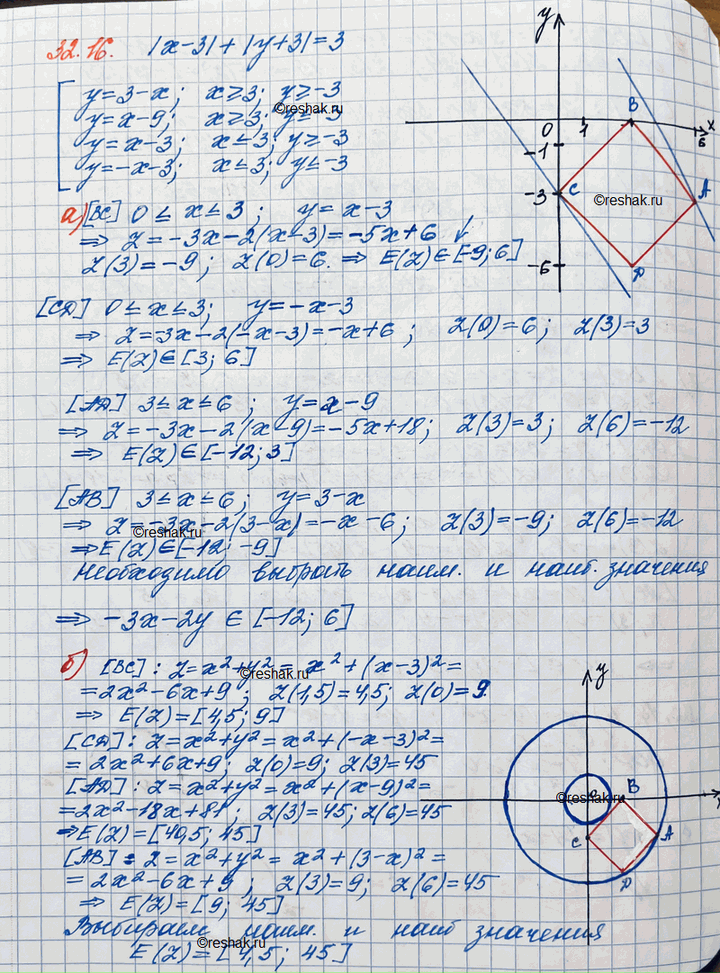 32.16. |x-3|+|y+3|=3
y=3-x; x≥3; y≥-3
y=x-9; x≥3; y≤-3
y=x-3; x≤3; y≥-3
y=-x-3; x≤3; y≤-3
©reshak.ru
y
B
0 1 6 x
-1
-3 C A
©reshak.ru
-6 D
а) [BC] 0≤x≤3; y=x-3
⇒ Z=-3x-2(x-3)=-5x+6 ↓
Z(3)=-9; Z(0)=6. ⇒ E(Z)∈[-9;6]
[CD] 0≤x≤3; y=-x-3
⇒ Z=-3x-2(-x-3)=-x+6; Z(0)=6; Z(3)=3
⇒ E(Z)∈[3;6]
[AD] 3≤x≤6; y=x-9
⇒ Z=-3x-2(x-9)=-5x+18; Z(3)=3; Z(6)=-12
⇒ E(Z)∈[-12;3]
[AB] 3≤x≤6; y=3-x
⇒ Z=-3x-2(3-x)=-x-6; Z(3)=-9; Z(6)=-12
©reshak.ru
⇒ E(Z)∈[-12;-9]
Необходимо выбрать наим. и наиб. значения
⇒ -3x-2y ∈ [-12; 6]
б) [BC]: Z=x²+y²=x²+(x-3)²=
©reshak.ru
=2x²-6x+9; Z(1,5)=4,5; Z(0)=9.
⇒ E(Z)=[4,5; 9]
[CD]: Z=x²+y²=x²+(-x-3)²=
=2x²+6x+9; Z(0)=9; Z(3)=45
[AD]: Z=x²+y²=x²+(x-9)²=
=2x²-18x+81; Z(3)=45; Z(6)=45
⇒E(Z)=[40,5; 45]
[AB]: Z=x²+y²=x²+(3-x)²=
=2x²-6x+9; Z(3)=9; Z(6)=45
⇒ E(Z)=[9; 45]
Выбираем наим. и наиб значения
©reshak.ru
E(Z)=[4,5; 45]
y
©reshak.ru
B
C A
D